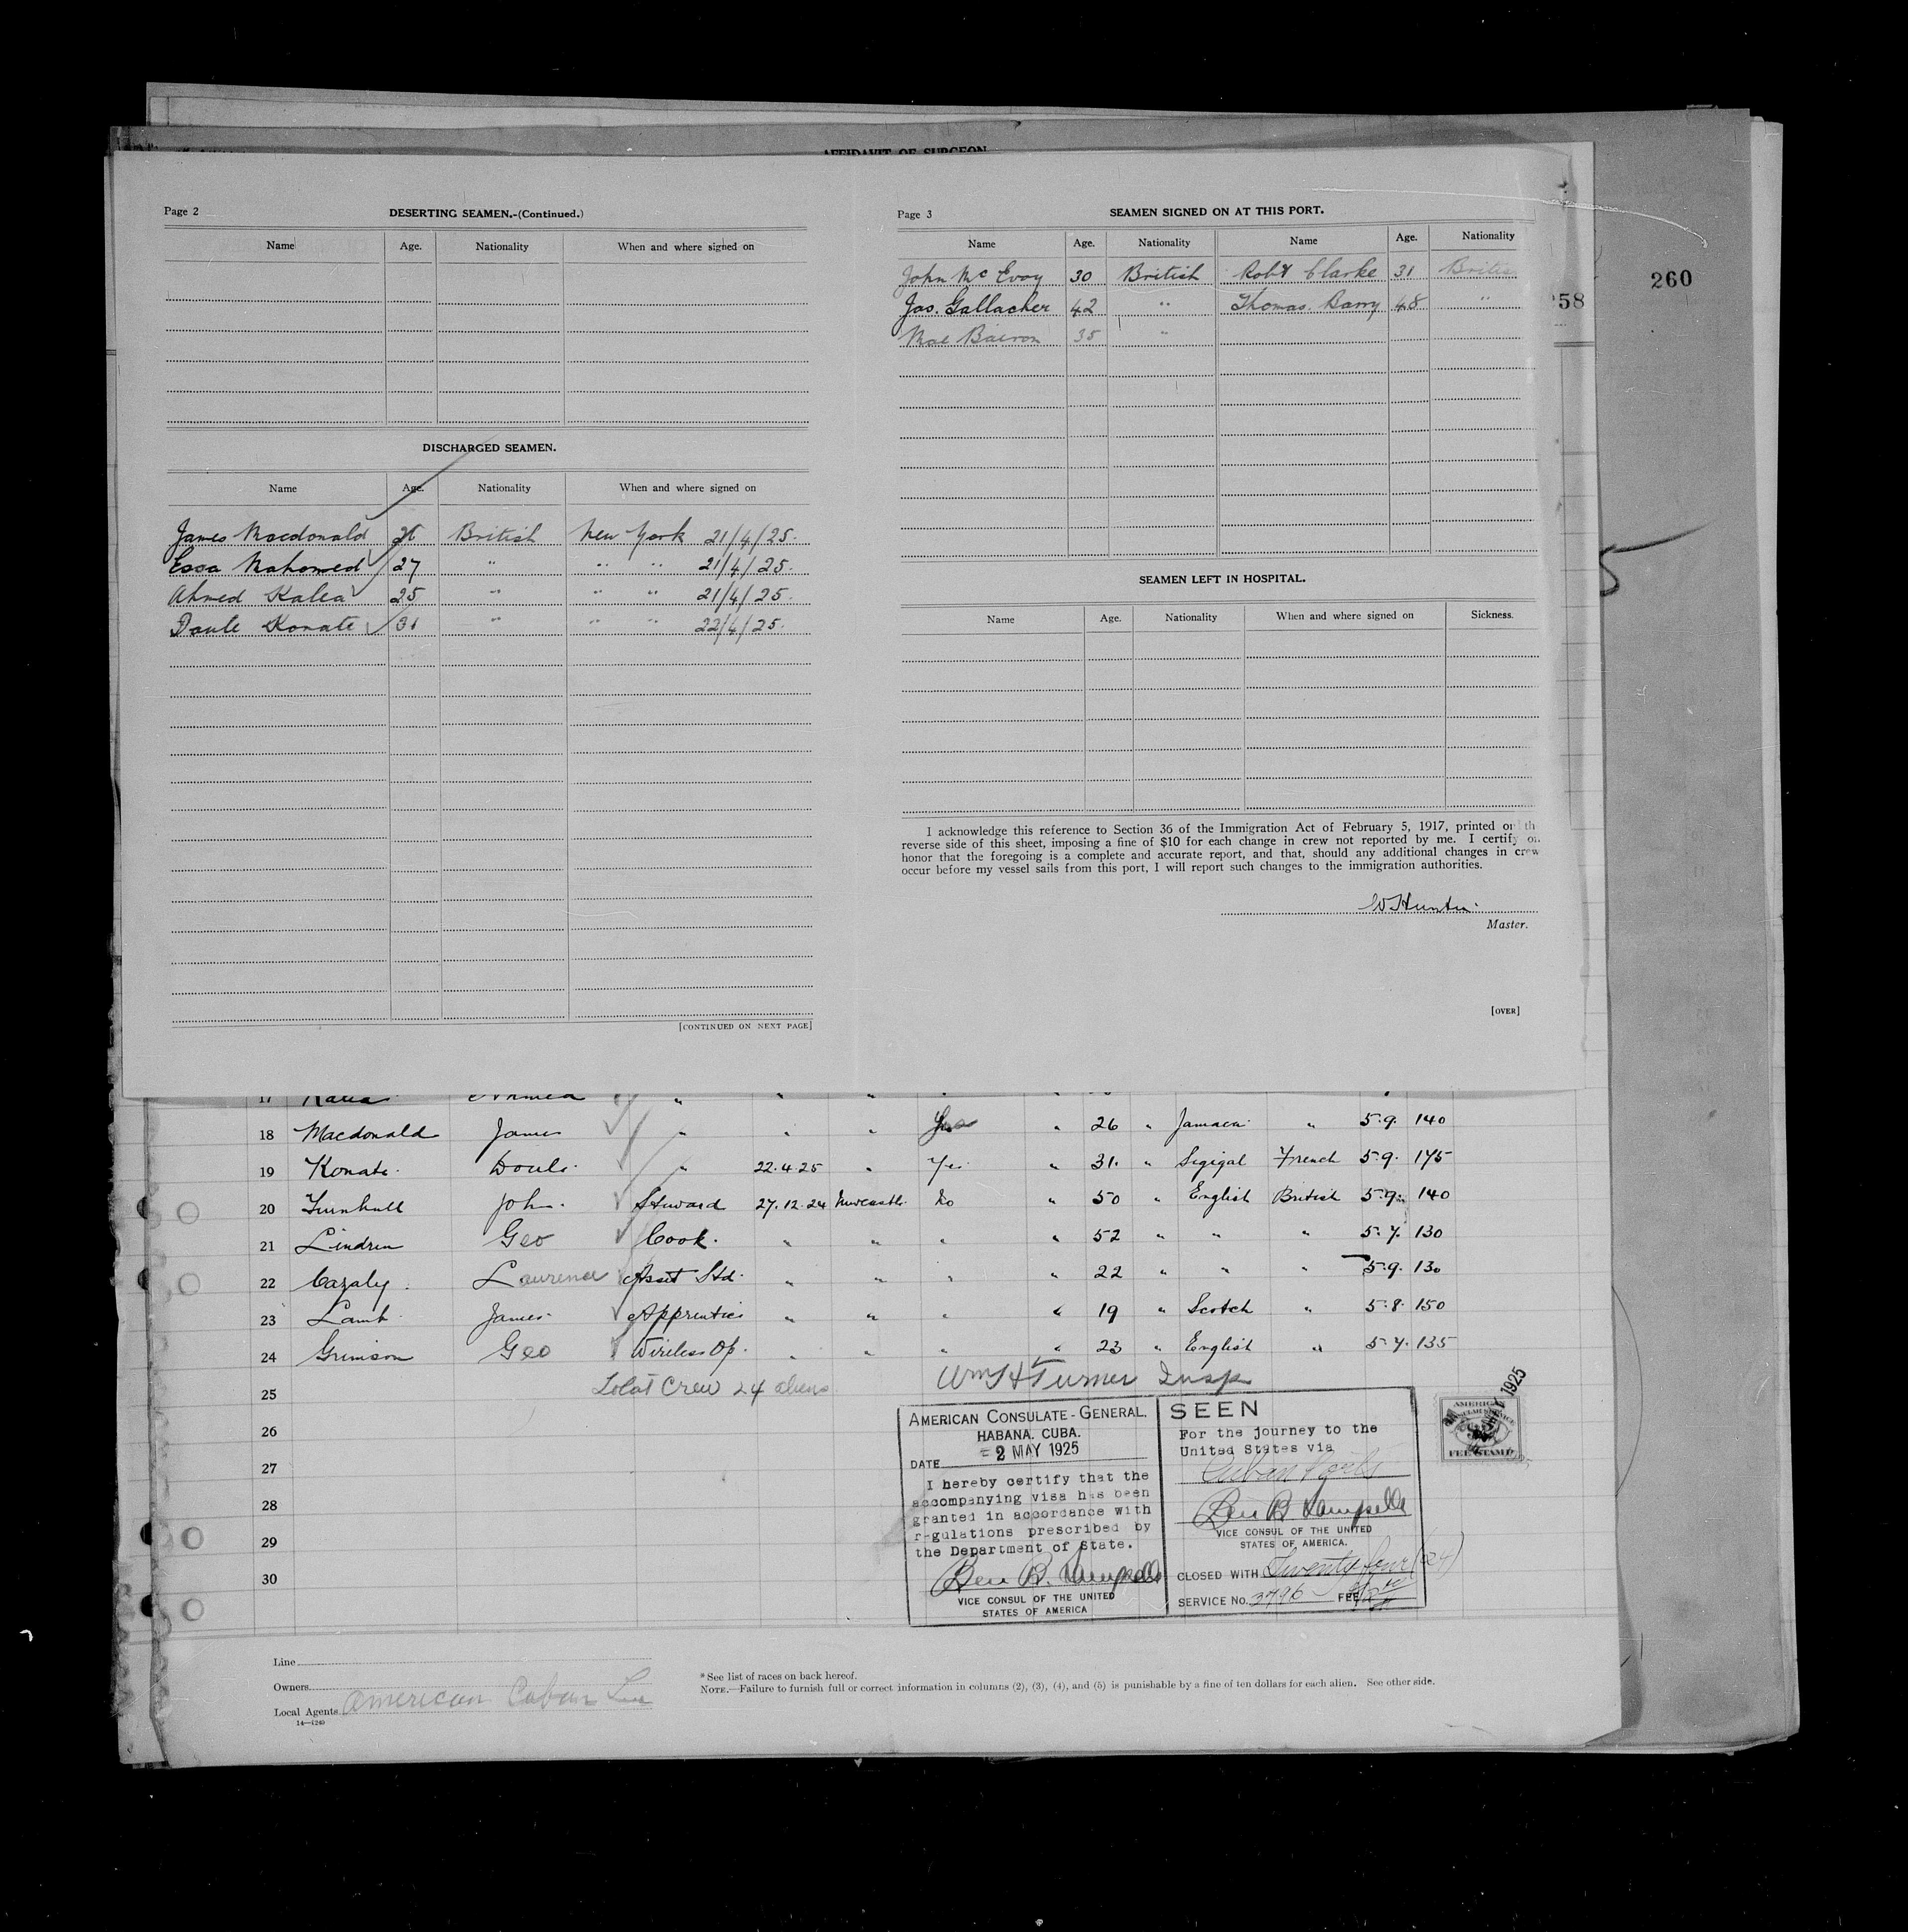 AFFIDAVIT OF SURGEON
260
258
Page 2
DESERTING SEAMEN.-(Continued.)
Name Age. Nationality When and where signed on
DISCHARGED SEAMEN.
Name Age. Nationality When and where signed on
James Macdonald 26 British New York 21/4/25.
Essa Mahomed 27 " " " 21/4/25.
Ahmed Kalea 25 " " " 21/4/25.
Doule Konate 31 " " " 22/4/25.
[CONTINUED ON NEXT PAGE]
Page 3
SEAMEN SIGNED ON AT THIS PORT.
Name Age. Nationality Name Age. Nationality
John McEvoy 30 British Robt Clarke 31 British
Jas. Gallacher 42 " Thomas. Barry 48 "
35 "
SEAMEN LEFT IN HOSPITAL.
Name Age. Nationality When and where signed on Sickness.
I acknowledge this reference to Section 36 of the Immigration Act of February 5, 1917, printed on th
reverse side of this sheet, imposing a fine of $10 for each change in crew not reported by me. I certify on
honor that the foregoing is a complete and accurate report, and that, should any additional changes in crew
occur before my vessel sails from this port, I will report such changes to the immigration authorities.
W Hunter.
Master.
[OVER]
17 Kalea Ahmed " " "
18 Macdonald James " " " Yes " 26 " Jamaica " 5.9. 140
19 Konate. Doule. " 22.4.25 " Yes " 31. " French 5.9. 175
20 Turnbull John. Steward 27.12.24 Newcastle. No " 50 " English British 5.9. 140
21 Lindren Geo Cook. " " " " 52 " " " 5.7. 130
22 Cazaly. Laurence Asst Std. " " " " 22 " " " 5.9. 130
23 Lamb James Apprentice " " " " 19 " Scotch " 5.8. 150
24 Grimson Geo Wireless Op. " " " " 23 " English " 5.7. 135
25 Total Crew 24 aliens Wm H Turner Insp
26
27
28
29
30
AMERICAN CONSULATE-GENERAL.
HABANA. CUBA.
DATE 2 MAY 1925
I hereby certify that the
accompanying visa has been
granted in accordance with
regulations prescribed by
the Department of State.
Ben B.
VICE CONSUL OF THE UNITED
STATES OF AMERICA
SEEN
For the journey to the
United States via
Cuban Ports
Ben B.
VICE CONSUL OF THE UNITED
STATES OF AMERICA.
CLOSED WITH Twenty four (24)
SERVICE No. 3796 FEE
AMERICAN
CONSULAR SERVICE
FEE STAMP
1925
Line
Owners
Local Agents American Cuban Line
14—1240
*See list of races on back hereof.
NOTE.—Failure to furnish full or correct information in columns (2), (3), (4), and (5) is punishable by a fine of ten dollars for each alien. See other side.